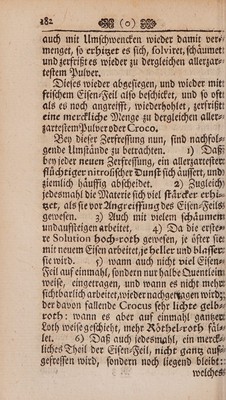 182 (o)
auch mit Umschwencken wieder damit ver-
menget, so erhitzet es sich, solviret, schäumet
und zerfrißt es wieder zu dergleichen allerzar-
testem Pulver.
Dieses wieder abgesiegen, und wieder mit
frischem Eisen-Feil also beschicket, und so oft
als es noch angreifft, wiederhohlet, zerfrißt
eine merckliche Menge zu dergleichen aller-
zartestem Pulver oder Croco.
Bey dieser Zerfressung nun, sind nachfol-
gende Umstände zu betrachten. 1) Daß
bey jeder neuen Zerfressung, ein allerzartester
flüchtiger nitrosischer Dunst sich äussert, und
ziemlich häuffig abscheidet. 2) Zugleich
jedesmahl die Materie sich viel stärcker erhi-
tzet, als sie vor Angreiffung des Eisen-Feils
gewesen. 3) Auch mit vielem schäumen
und aufsteigen arbeitet. 4) Da die erste-
re Solution hoch-roth gewesen, je öfter sie
mit neuen Eisen arbeitet, je heller und blasser
sie wird. 5) wann auch nicht viel Eisen-
Feil auf einmahl, sondern nur halbe Quentlein
weise, eingetragen, und wann es nicht mehr
sichtbarlich arbeitet, wieder nachgetragen wird;
der davon fallende Crocus sehr lichte gelb-
roth: wann es aber auf einmahl gantzer
Loth weise geschieht, mehr Röthel-roth fäl-
let. 6) Daß auch jedesmahl, ein merck-
liches Theil der Eisen-Feil, nicht gantz auf-
gefressen wird, sondern noch liegend bleibt:
welches